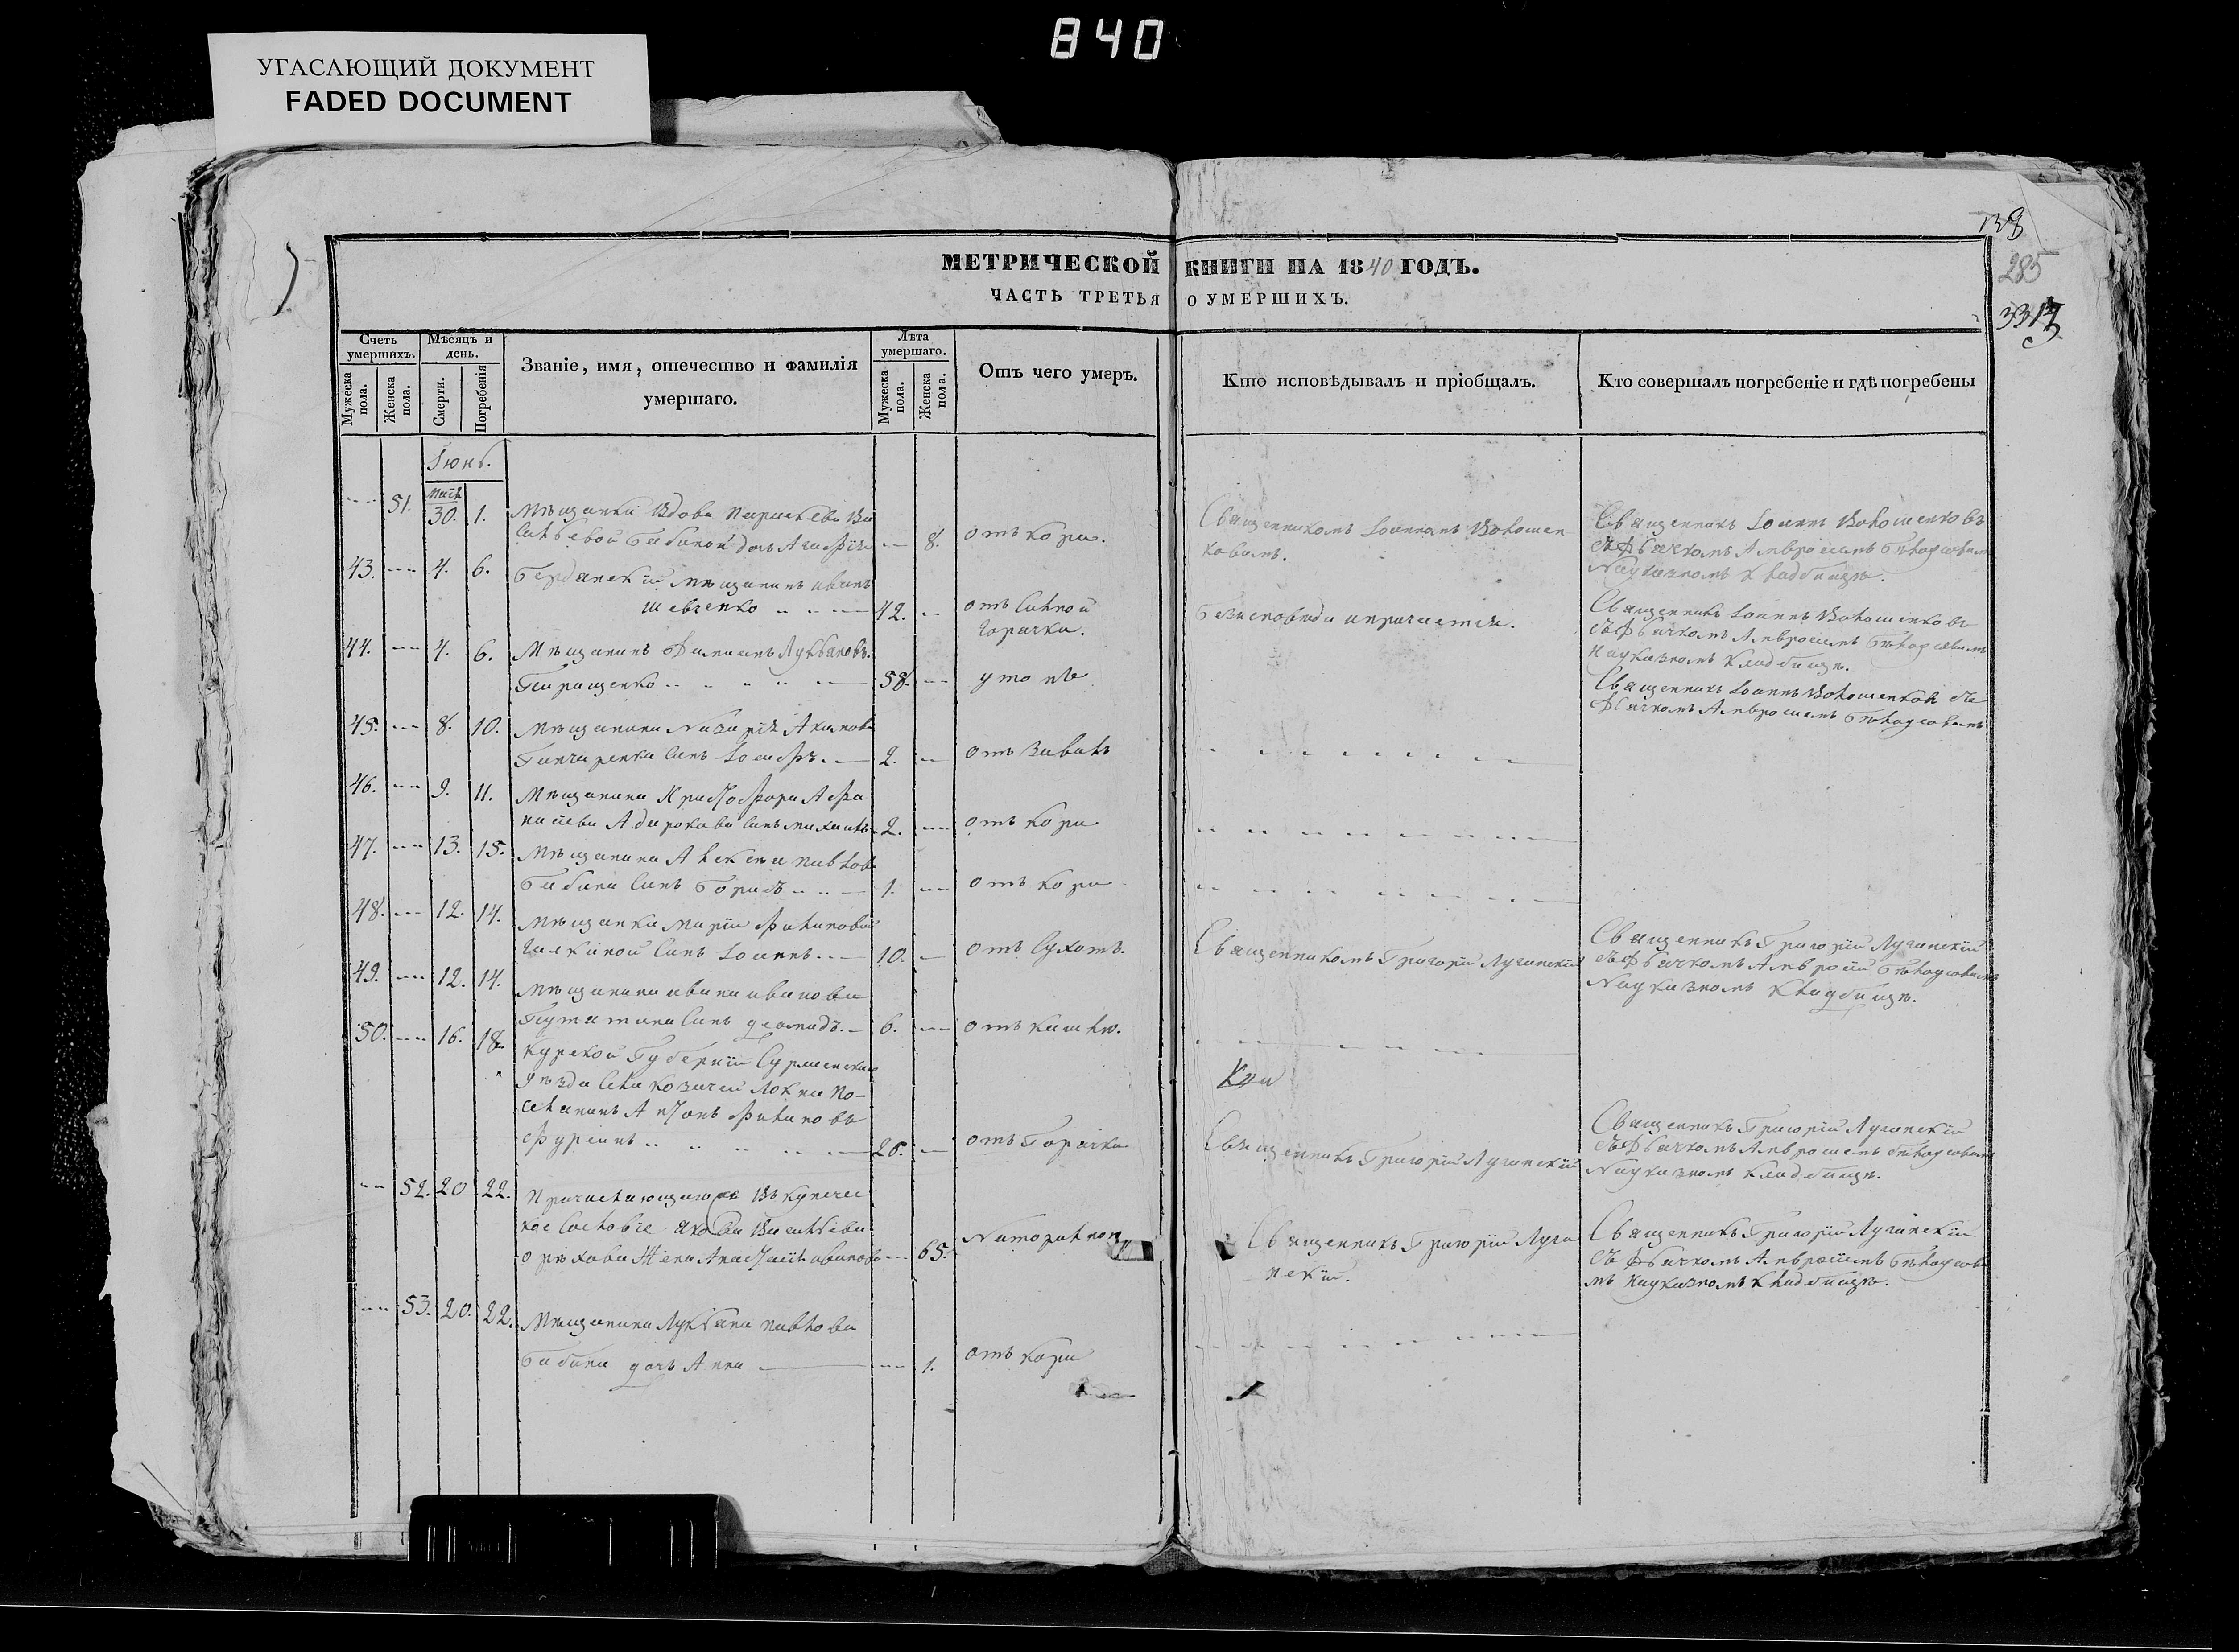 840
УГАСАЮЩИЙ ДОКУМЕНТ
FADED DOCUMENT
138
285
МЕТРИЧЕСКОЙ КНИГИ НА 1840 ГОДЪ.
ЧАСТЬ ТРЕТЬЯ О УМЕРШИХЪ.
Счетъ умершихъ.
Мужеска пола.
Женска пола.
Мѣсяцъ и день.
Смерти.
Погребенія
Званіе, имя, отечество и фамилія умершаго.
Лѣта умершаго.
Мужеска пола.
Женска пола.
Отъ чего умеръ.
Кто исповѣдывалъ и пріобщалъ.
Кто совершалъ погребеніе и гдѣ погребены
Іюнь.
51. Маія 30. 1. Мѣщанки Вдовы Параскевы Ва
сильевой Бабиной дочь Агафія 8. отъ кори.
Священникомъ Іоанномъ Волошен
ковымъ.
Священникъ Іоаннъ Волошенковъ
съ Дьячкомъ Амвросіемъ
На указномъ кладбищѣ.
43. 4. 6. Бердянскій мѣщанинъ Иванъ
Шевченко 42. отъ сильной
горячки.
Безъ исповѣди и причастія.
Священникъ Іоаннъ Волошенковъ
съ Дьячкомъ Амвросіемъ
На указномъ кладбищѣ.
44. 4. 6. Мѣщанинъ Лукьяновъ
58. утопъ
Священникъ Іоаннъ Волошенковъ съ
Дьячкомъ Амвросіемъ
45. 8. 10. Мѣщанина Назарія Акимова
Гончаренка сынъ Іосифъ. 2. отъ завалъ
46. 9. 11. Мѣщанина Христофора Афа
насіева сынъ Михаилъ 2. отъ кори
47. 13. 15. Мѣщанина Алексѣя Павлова
Бабина сынъ Борисъ 1. отъ кори
48. 12. 14. Мѣщанки Маріи Филиповой
сынъ Іоаннъ. 10. отъ сухотъ.
Священникомъ Григорій Лугинскій
Священникъ Григорій Лугинскій
съ Дьячкомъ Амвросій
На указномъ кладбищѣ.
49. 12. 14. Мѣщанина Ивана Иванова
сынъ Діомидъ. 6. отъ кашлю.
50. 16. 18. Курской Губерніи
Уѣзда села Козачей Локни По-
селянинъ Антонъ Филиповъ
Фурсинъ 28. отъ Горячки
Священникъ Григорій Лугинскій
Священникъ Григорій Лугинскій
съ Дьячкомъ Амвросіемъ
На указномъ кладбищѣ.
52. 20 22. Причисляющагося въ купечес
кое сословіе Якова Васильева
Орѣхова жена Анастасія Иванова 65. Наторально
Священникъ Григорій Луги
нскій.
Священникъ Григорій Лугинскій
съ Дьячкомъ Амвросіемъ
мъ на указномъ кладбищѣ.
53. 20. 22. Мѣщанина Лукьяна Павлова
Бабина дочь Анна 1. отъ кори